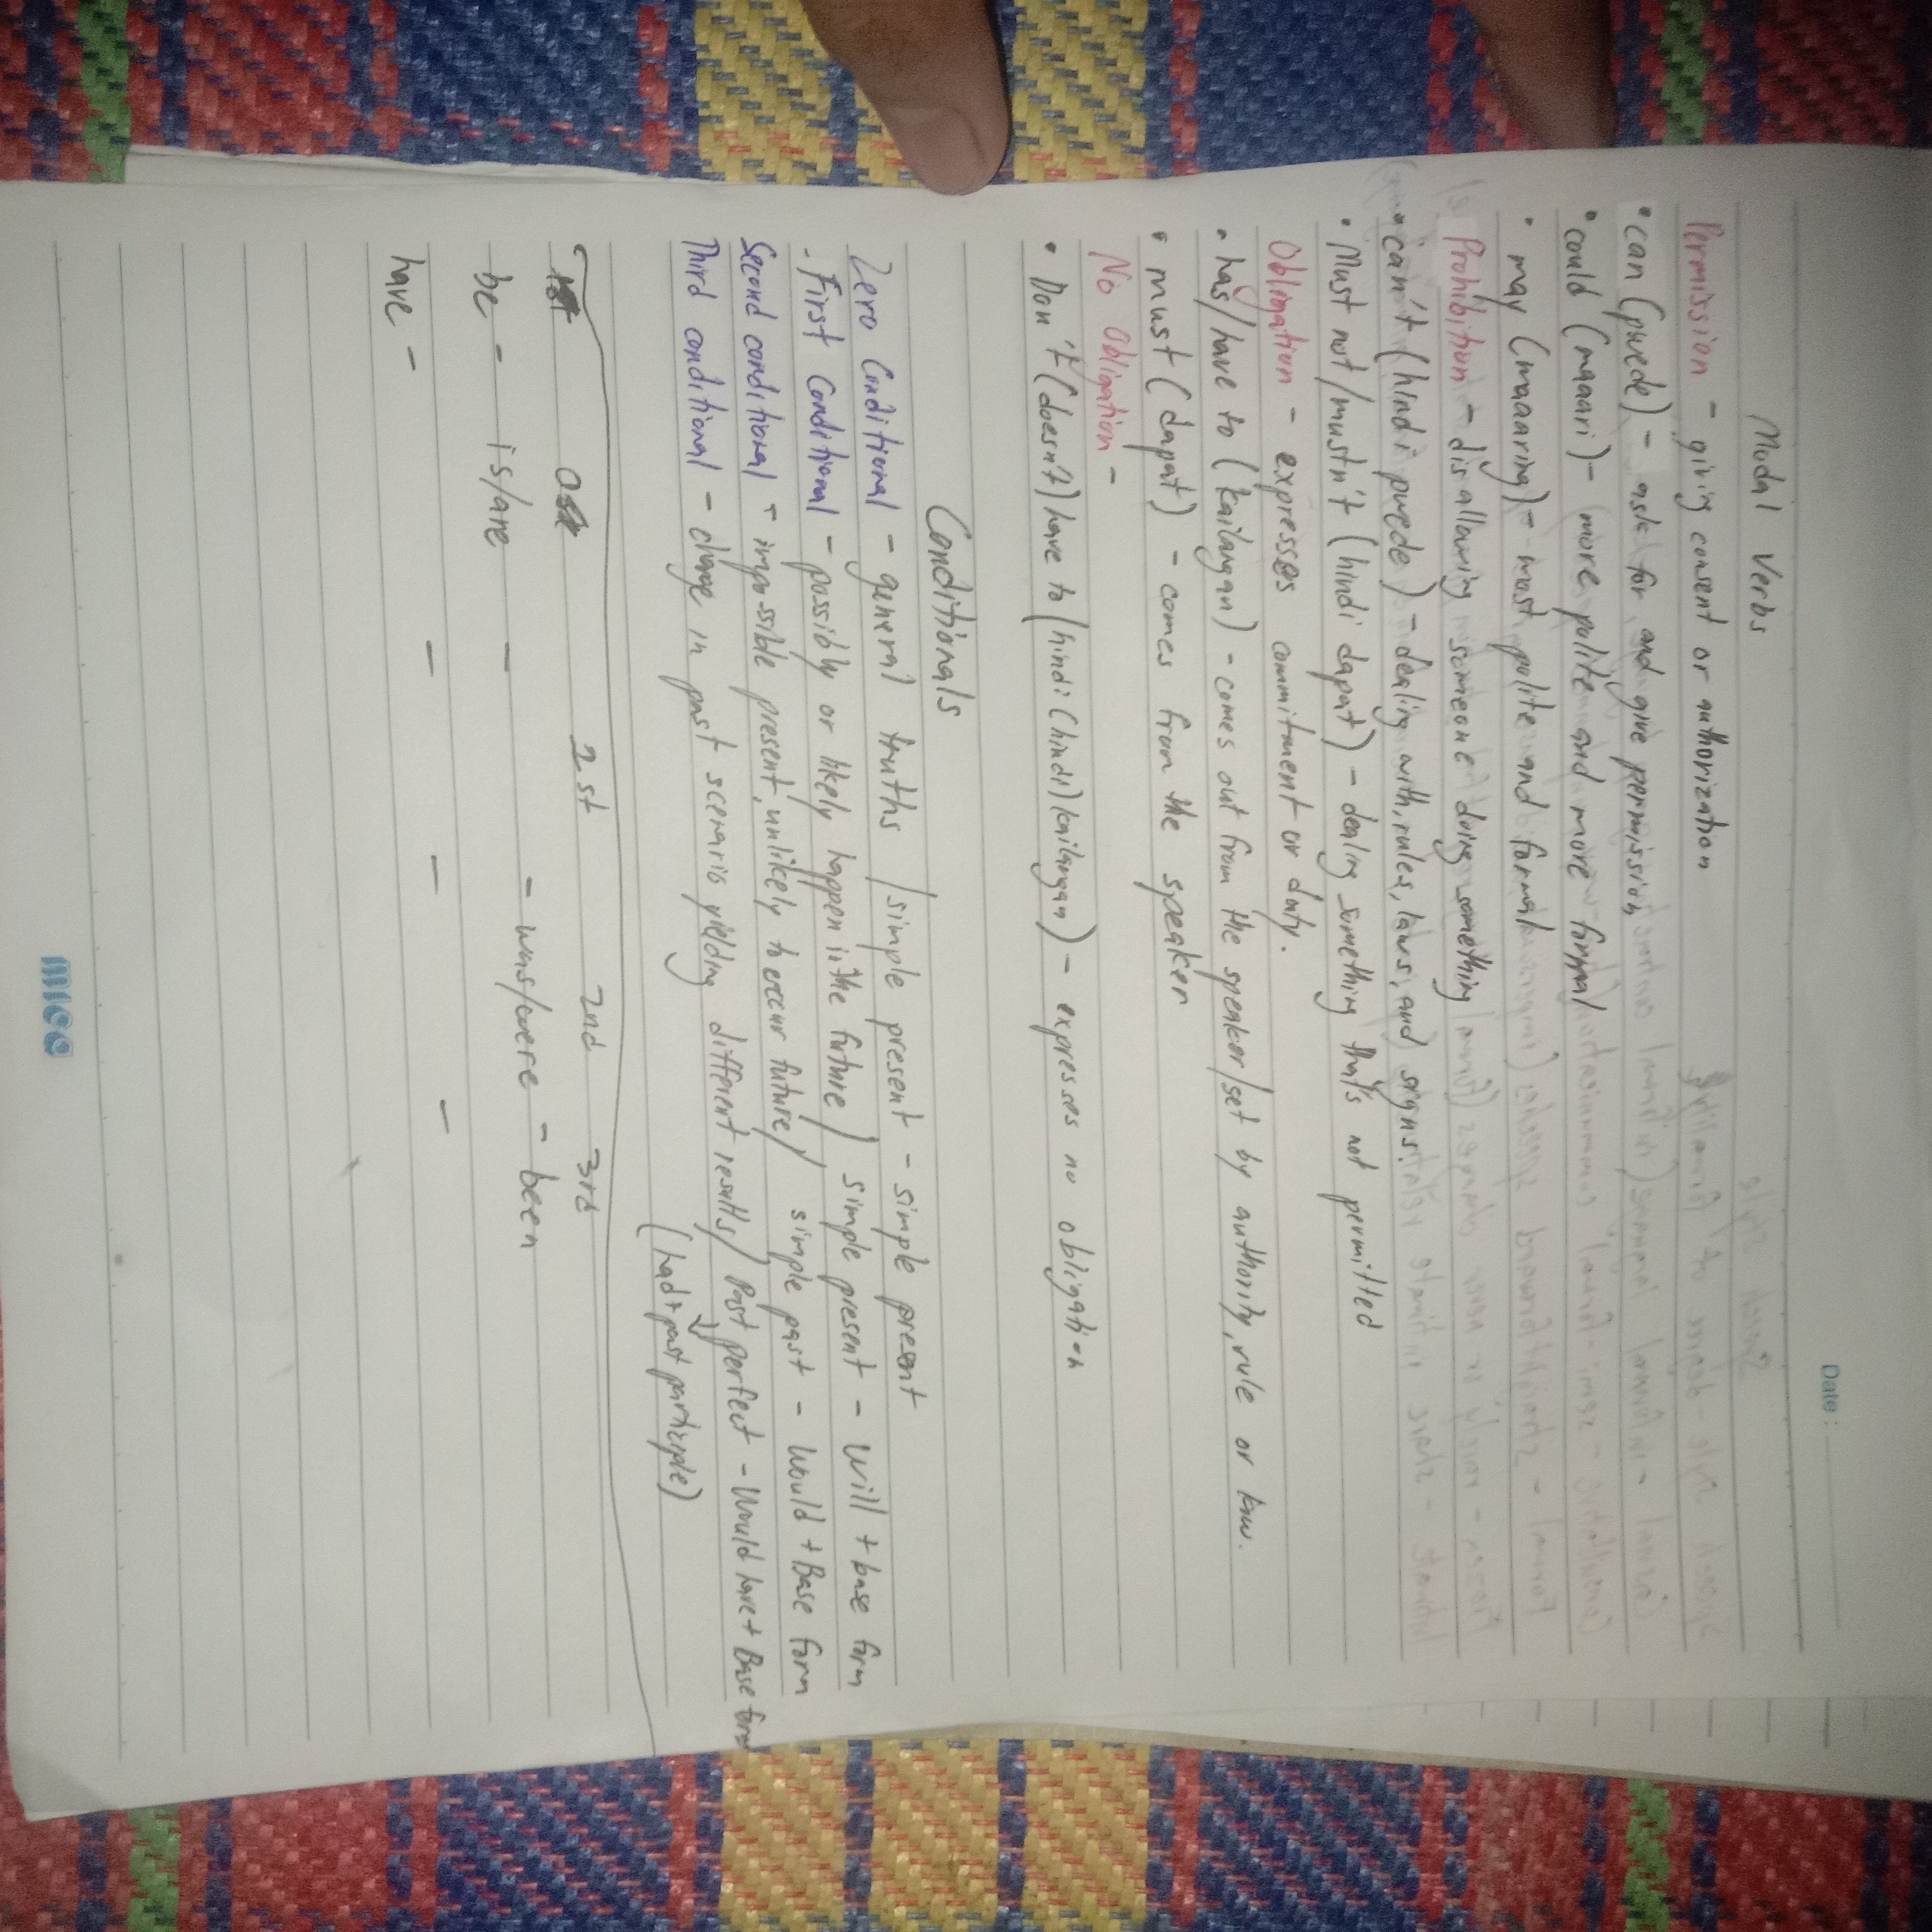 Date :
Modal Verbs
Permission - giving consent or authorization
• can (pwede) - ask for and give permission
• could (maaari) - more polite and more formal
• may (maaaring) - most polite and formal
Prohibition - disallowing someone doing something
• can't (hindi pwede) - dealing with, rules, laws, and signs.
• Must not/mustn't (hindi dapat) - dealing something that's not permitted
Obligation - expresses commitment or duty.
• has/have to (kailangan) - comes out from the speaker/set by authority, rule or law.
• must (dapat) - comes from the speaker
No Obligation -
• Don't (doesn't) have to (hindi (hindi) kailangan) - expresses no obligation
Conditionals
Zero Conditional - general truths / simple present - simple present
- First Conditional - possibly or likely happen in the future / simple present - will + base form
Second conditional - impossible present, unlikely to occur future / simple past - Would + Base form
Third conditional - change in past scenario yielding different results / Past perfect - Would have + Base form
(had + past participle)
0 1st 2nd 3rd
be - is/are - - was/were - been
have - - - -
mico